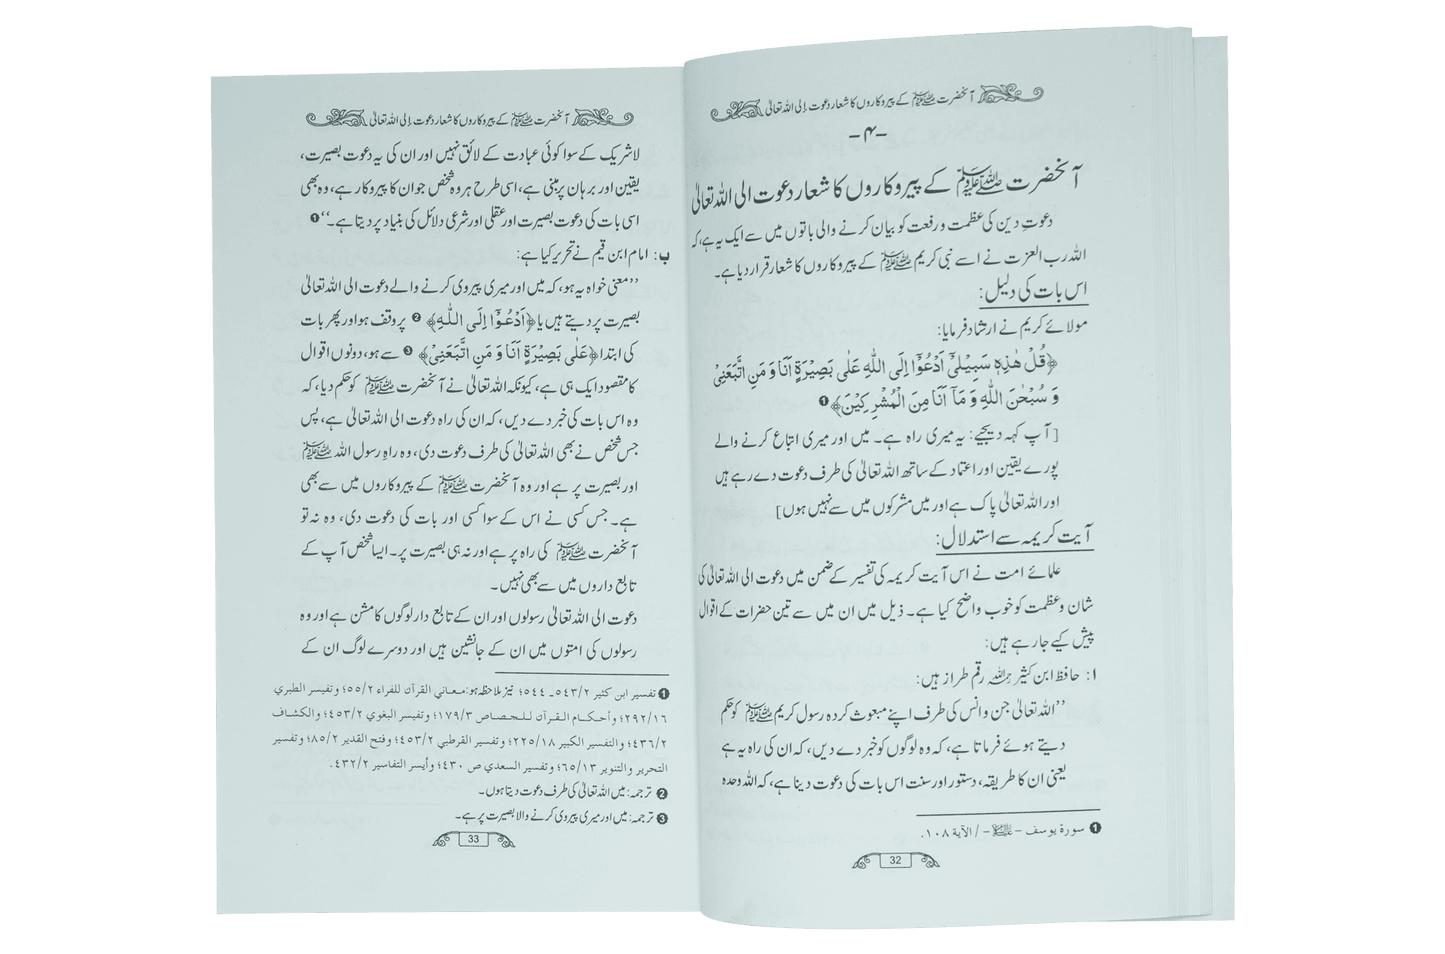 آنحضرت ﷺ کے پیروکاروں کا شعار دعوت إلی اللہ تعالیٰ
-۴-
آنحضرت ﷺ کے پیروکاروں کا شعار دعوت الی اللہ تعالیٰ
دعوتِ دین کی عظمت و رفعت کو بیان کرنے والی باتوں میں سے ایک یہ ہے، کہ
اللہ رب العزت نے اسے نبی کریم ﷺ کے پیروکاروں کا شعار قرار دیا ہے۔
اس بات کی دلیل:
مولائے کریم نے ارشاد فرمایا:
﴿قُلْ هٰذِهٖ سَبِیْلِیْٓ اَدْعُوْٓا اِلَی اللّٰهِ عَلٰی بَصِیْرَةٍ اَنَا وَ مَنِ اتَّبَعَنِیْ
وَ سُبْحٰنَ اللّٰهِ وَ مَآ اَنَا مِنَ الْمُشْرِکِیْنَ﴾ ❶
[آپ کہہ دیجیے: یہ میری راہ ہے۔ میں اور میری اتباع کرنے والے
پورے یقین اور اعتماد کے ساتھ اللہ تعالیٰ کی طرف دعوت دے رہے ہیں
اور اللہ تعالیٰ پاک ہے اور میں مشرکوں میں سے نہیں ہوں]
آیت کریمہ سے استدلال:
علمائے امت نے اس آیت کریمہ کی تفسیر کے ضمن میں دعوت الی اللہ تعالیٰ کی
شان و عظمت کو خوب واضح کیا ہے۔ ذیل میں ان میں سے تین حضرات کے اقوال
پیش کیے جا رہے ہیں:
ا: حافظ ابن کثیر رحمہ اللہ رقم طراز ہیں:
’’اللہ تعالیٰ جن و انس کی طرف اپنے مبعوث کردہ رسول کریم ﷺ کو حکم
دیتے ہوئے فرماتا ہے، کہ وہ لوگوں کو خبر دے دیں، کہ ان کی راہ یہ ہے
یعنی ان کا طریقہ، دستور اور سنت اس بات کی دعوت دینا ہے، کہ اللہ وحدہ
❶ سورة یوسف - علیہ السلام - / الآیة ۱۰۸.
32
آنحضرت ﷺ کے پیروکاروں کا شعار دعوت إلی اللہ تعالیٰ
لا شریک کے سوا کوئی عبادت کے لائق نہیں اور ان کی یہ دعوت بصیرت،
یقین اور برہان پر مبنی ہے، اسی طرح ہر وہ شخص جو ان کا پیروکار ہے، وہ بھی
اسی بات کی دعوت بصیرت اور عقلی اور شرعی دلائل کی بنیاد پر دیتا ہے۔‘‘ ❶
ب: امام ابن قیم نے تحریر کیا ہے:
’’معنی خواہ یہ ہو، کہ میں اور میری پیروی کرنے والے دعوت الی اللہ تعالیٰ
بصیرت پر دیتے ہیں یا ﴿اَدْعُوْٓا اِلَی اللّٰهِ﴾ ❷ پر وقف ہو اور پھر بات
کی ابتدا ﴿عَلٰی بَصِیْرَةٍ اَنَا وَ مَنِ اتَّبَعَنِیْ﴾ ❸ سے ہو، دونوں اقوال
کا مقصود ایک ہی ہے، کیونکہ اللہ تعالیٰ نے آنحضرت ﷺ کو حکم دیا، کہ
وہ اس بات کی خبر دے دیں، کہ ان کی راہ دعوت الی اللہ تعالیٰ ہے، پس
جس شخص نے بھی اللہ تعالیٰ کی طرف دعوت دی، وہ راہِ رسول اللہ ﷺ
اور بصیرت پر ہے اور وہ آنحضرت ﷺ کے پیروکاروں میں سے بھی
ہے۔ جس کسی نے اس کے سوا کسی اور بات کی دعوت دی، وہ نہ تو
آنحضرت ﷺ کی راہ پر ہے اور نہ ہی بصیرت پر۔ ایسا شخص آپ کے
تابع داروں میں سے بھی نہیں۔
دعوت الی اللہ تعالیٰ رسولوں اور ان کے تابع دار لوگوں کا مشن ہے اور وہ
رسولوں کی امتوں میں ان کے جانشین ہیں اور دوسرے لوگ ان کے
❶ تفسیر ابن کثیر ۲/۵۴۳۔۵۴۴؛ نیز ملاحظہ ہو: معاني القرآن للفراء ۲/۵۵؛ وتفسير الطبري
۱۶/۲۹۲؛ وأحكام القرآن للجصاص ۳/۱۷۹؛ وتفسير البغوي ۲/۴۵۳؛ والكشاف
۲/۴۳۶؛ والتفسير الكبير ۱۸/۲۲۵؛ وتفسير القرطبي ۲/۴۵۳؛ وفتح القدير ۲/۸۵؛ وتفسير
التحرير والتنوير ۱۳/۶۵؛ وتفسير السعدي ص ۴۳۰؛ وأيسر التفاسير ۲/۴۳۲.
❷ ترجمہ: میں اللہ تعالیٰ کی طرف دعوت دیتا ہوں۔
❸ ترجمہ: میں اور میری پیروی کرنے والا بصیرت پر ہے۔
33